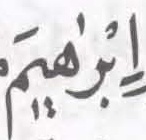 اِبْرٰهِيْمَ